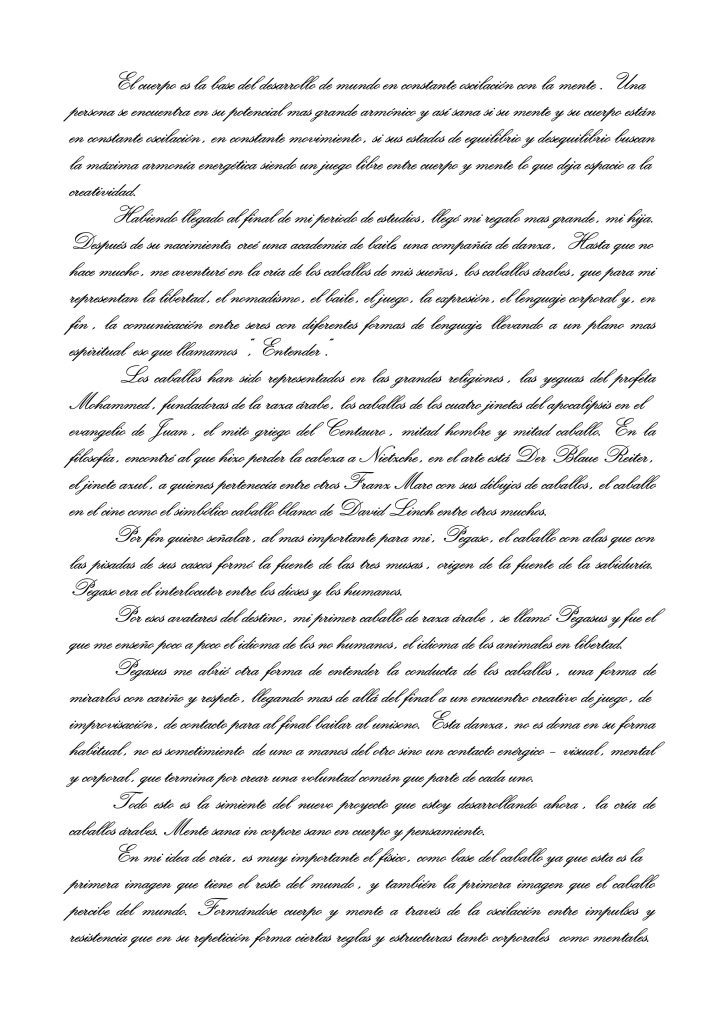 El cuerpo es la base del desarrollo de mundo en constante oscilación con la mente . Una
persona se encuentra en su potencial mas grande armónico y así sana si su mente y su cuerpo están
en constante oscilación, en constante movimiento, si sus estados de equilibrio y desequilibrio buscan
la máxima armonía energética siendo un juego libre entre cuerpo y mente lo que deja espacio a la
creatividad.
Habiendo llegado al final de mi periodo de estudios, llegó mi regalo mas grande, mi hija.
Después de su nacimiento, creé una academia de baile, una compañía de danza, Hasta que no
hace mucho, me aventuré en la cría de los caballos de mis sueños, los caballos árabes, que para mi
representan la libertad, el nomadismo, el baile, el juego, la expresión, el lenguaje corporal y, en
fin, la comunicación entre seres con diferentes formas de lenguaje, llevando a un plano mas
espiritual eso que llamamos “, Entender .”
Los caballos han sido representados en las grandes religiones , las yeguas del profeta
Mohammed, fundadoras de la raza árabe, los caballos de los cuatro jinetes del apocalípsis en el
evangelio de Juan , el mito griego del Centauro , mitad hombre y mitad caballo. En la
filosofía, encontré al que hizo perder la cabeza a Nietzche, en el arte está Der Blaue Reiter,
el jinete azul, a quienes pertenecía entre otros Franz Marc con sus dibujos de caballos, el caballo
en el cine como el simbólico caballo blanco de David Linch entre otros muchos.
Por fin quiero señalar, al mas importante para mi, Pegaso, el caballo con alas que con
las pisadas de sus cascos formó la fuente de las tres musas , origen de la fuente de la sabiduría.
Pegaso era el interlocutor entre los dioses y los humanos.
Por esos avatares del destino, mi primer caballo de raza árabe , se llamó Pegasus y fue el
que me enseño poco a poco el idioma de los no humanos, el idioma de los animales en libertad.
Pegasus me abrió otra forma de entender la conducta de los caballos , una forma de
mirarlos con cariño y respeto, llegando mas de allá del final a un encuentro creativo de juego, de
improvisación, de contacto para al final bailar al unisono. Esta danza, no es doma en su forma
habitual, no es sometimiento de uno a manos del otro sino un contacto enérgico – visual, mental
y corporal, que termina por crear una voluntad común que parte de cada uno.
Todo esto es la simiente del nuevo proyecto que estoy desarrollando ahora , la cría de
caballos árabes. Mente sana in corpore sano en cuerpo y pensamiento.
En mi idea de cría, es muy importante el físico, como base del caballo ya que esta es la
primera imagen que tiene el resto del mundo , y también la primera imagen que el caballo
percibe del mundo. Formándose cuerpo y mente a través de la oscilación entre impulsos y
resistencia que en su repetición forma ciertas reglas y estructuras tanto corporales como mentales.